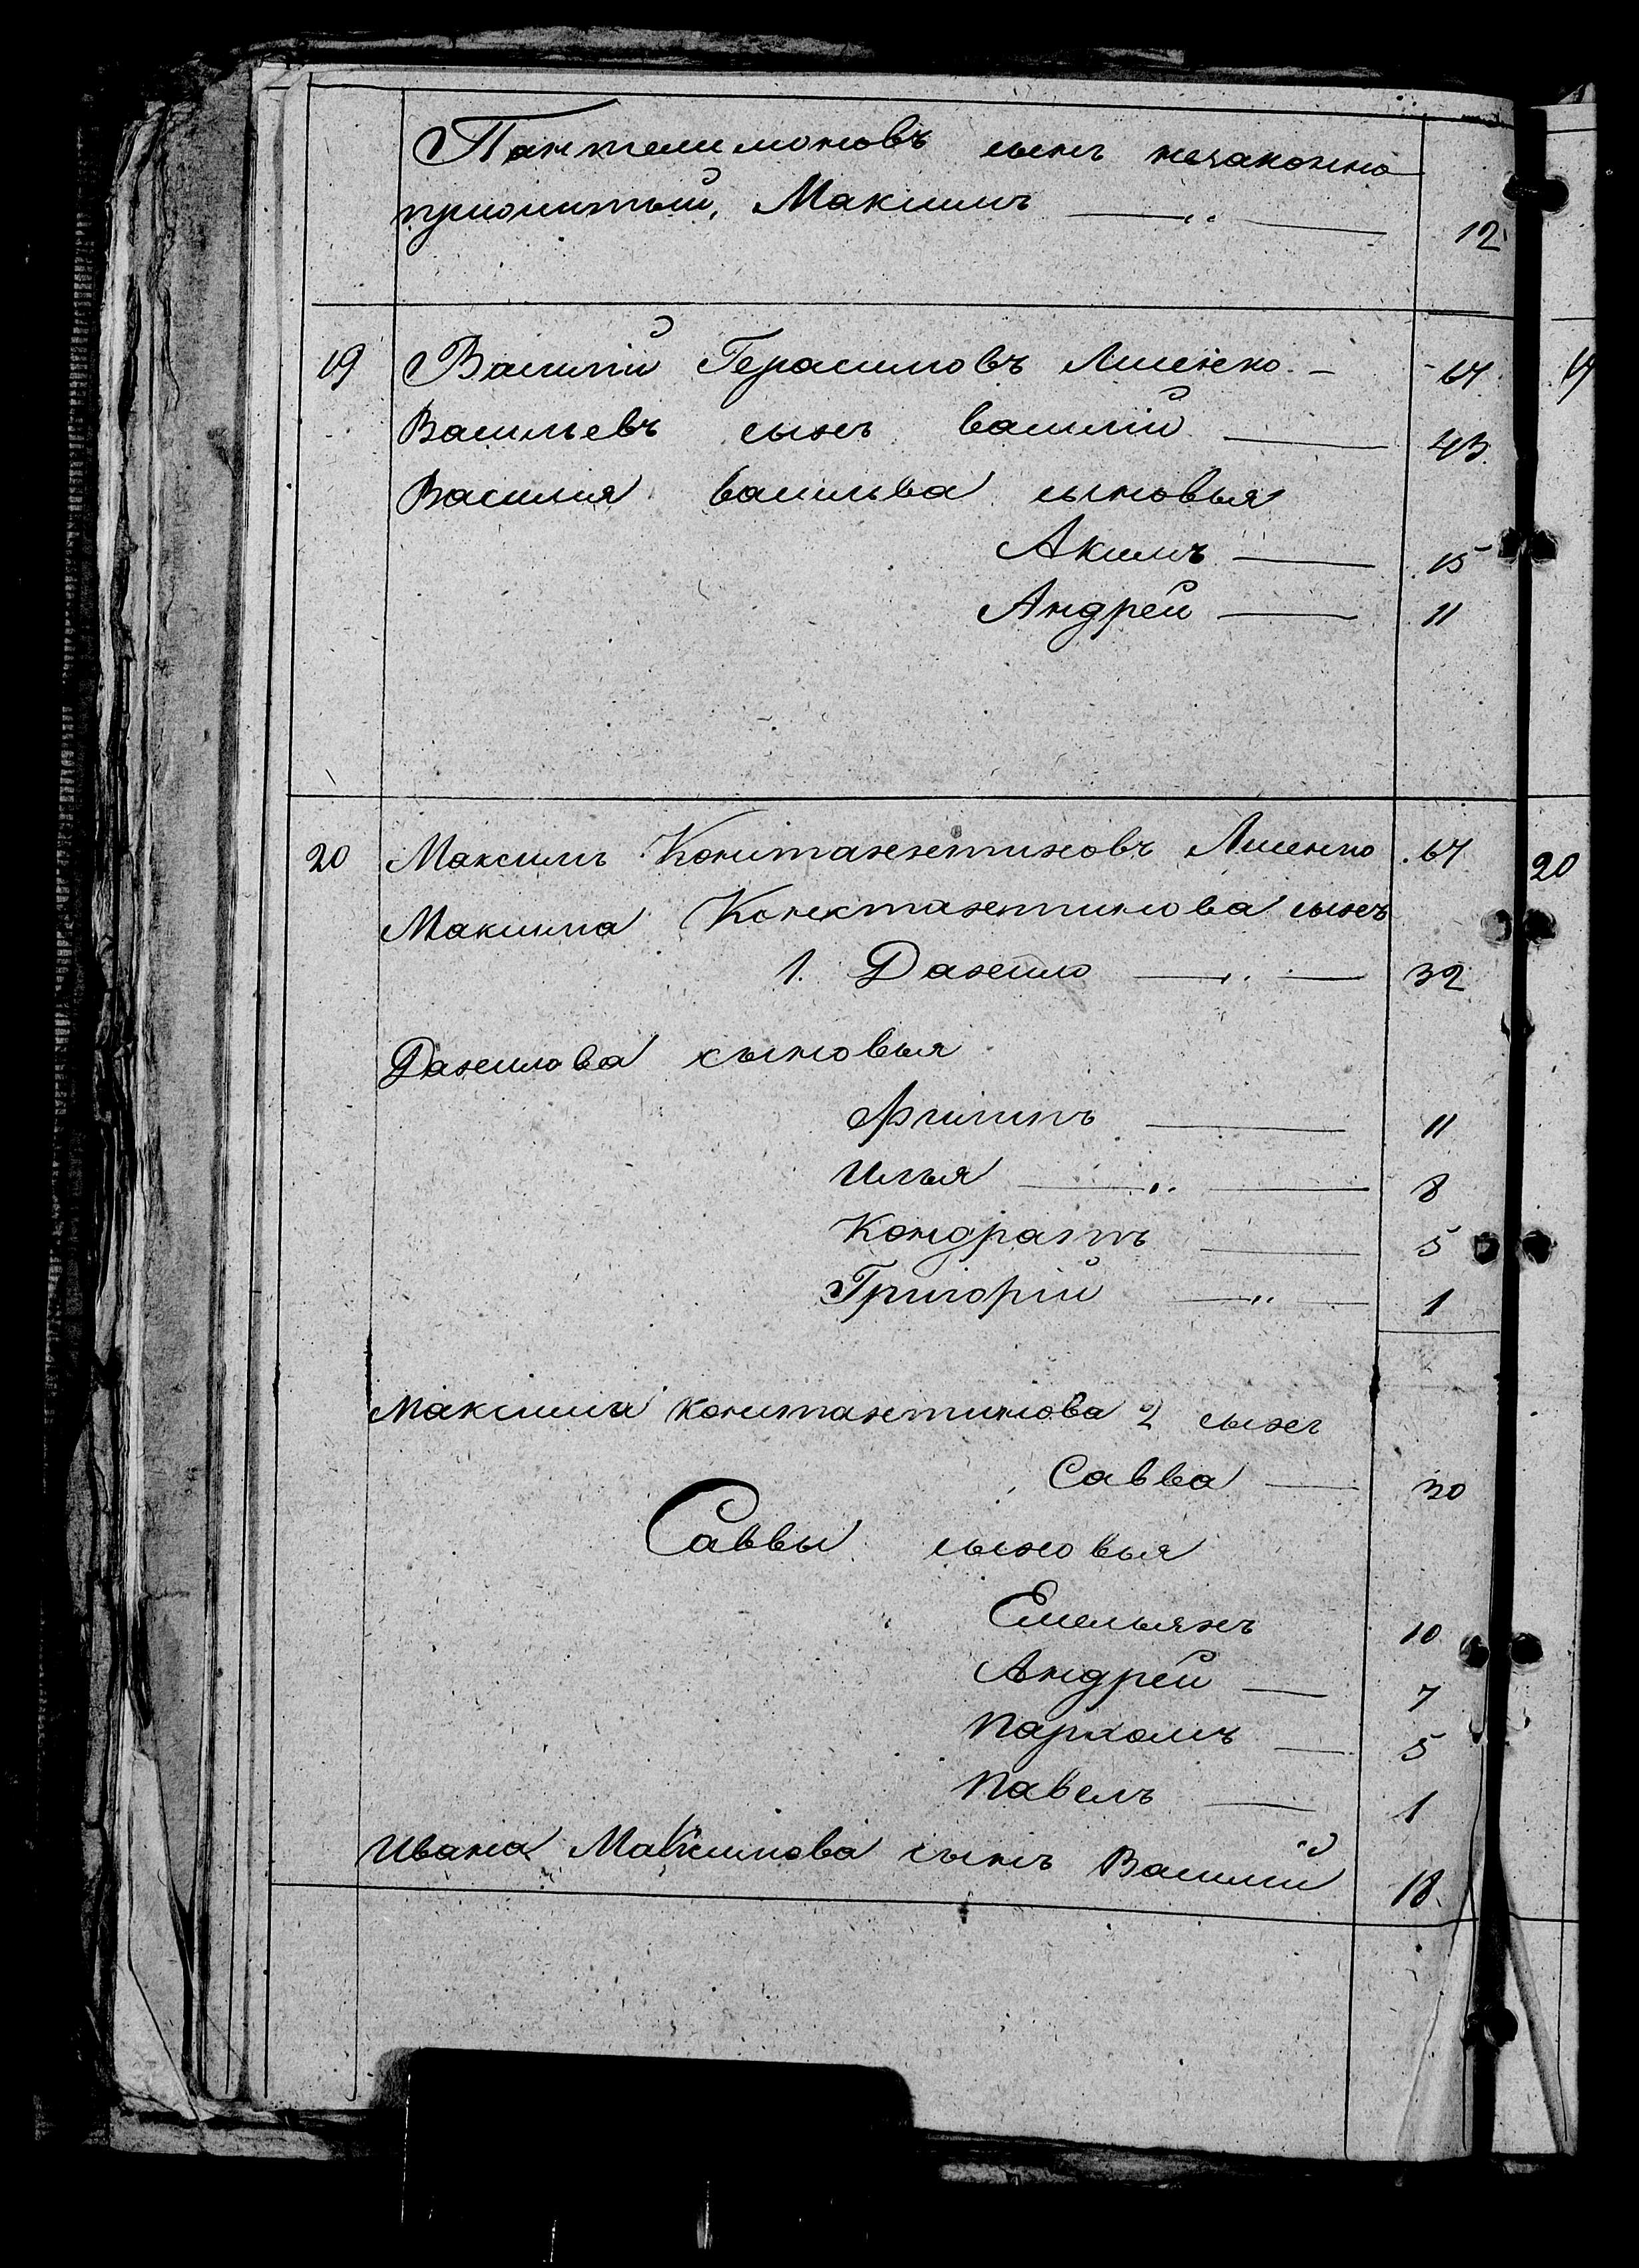 Пантелимоновъ сынъ незаконно
прижитый, Максимъ 12
19 Василій Герасимовъ Лисенко 64
Васильевъ сынъ василій 43
Василія васильва сыновья
Акимъ 15
Андрей 11
20 Максимъ Константиновъ Лисенко 64 20
Максима Константинова сынъ
1. Данило 32
Данилова сыновья
Филипъ 11
Илья 8
Кондратъ 5
Григорій 1
Максима константинова 2 сынъ
Савва 30
Саввы сыновья
Емельянъ 10
Андрей 7
Пархомъ 5
Павелъ 1
Ивана Максимова сынъ Василій 18